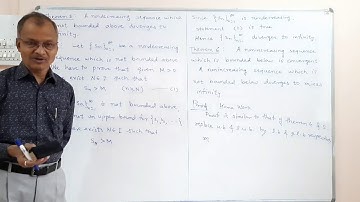 Theorem 5 A nondecreasing sequence which
not bounded above diverges to
infinity.
Let {Sn} be a nondecreasing
sequence which is not bounded above
have to prove that given M > 0
exist N ∈ I such that
Sn > M (n ≥ N)
is not bounded above
not an upper bound for
exist N ∈ I such that
SN > M
Since {Sn} is nondecreasing,
statement (1) is true
Hence {Sn} diverges to infinity.
Theorem 6 A nonincreasing sequence
which is bounded below is convergent
A nonincreasing sequence which is
not bounded below diverges to minus
infinity
Proof: Home work
Proof is similar to that of theorem
by